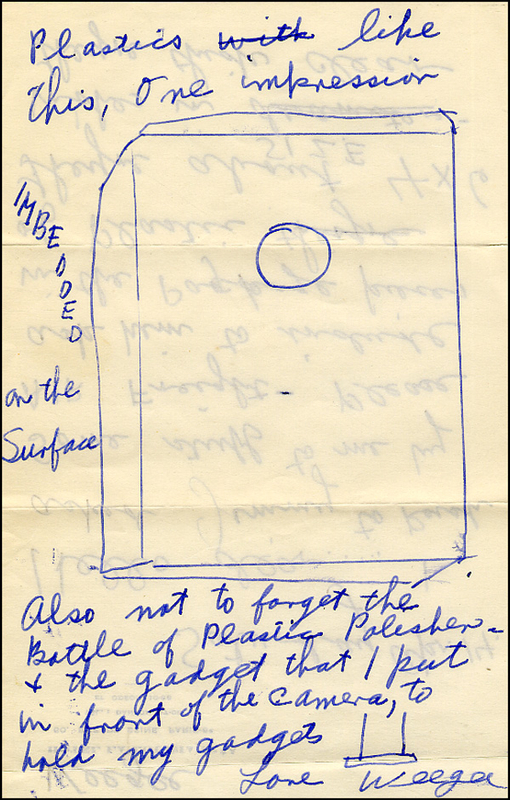 Plastics with like
This, One impression
IMBEDDED
on the
Surface
Also not to forget the
Bottle of Plastic Polisher -
+ the gadget that I put
in front of the camera, to
hold my gadgets
Love Weegee